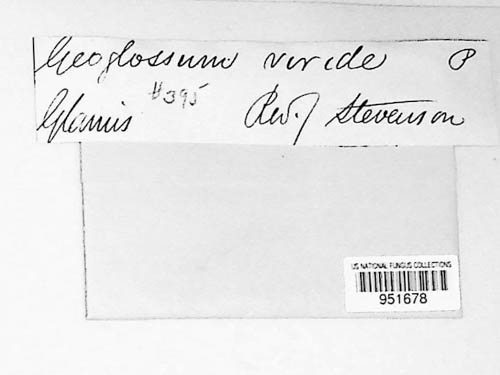 Geoglossum viride P
Glamis #395 Rev. J Stevenson
US NATIONAL FUNGUS COLLECTIONS
951678